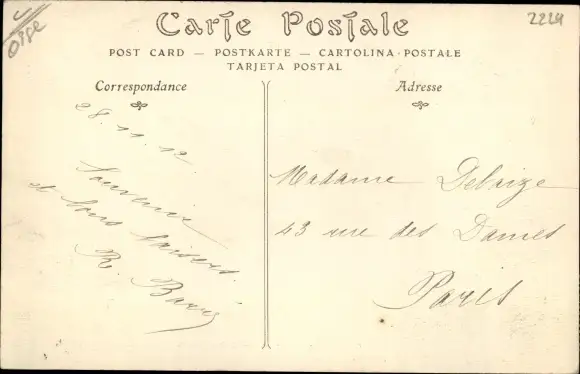 Oise
2224
Carte Postale
POST CARD — POSTKARTE — CARTOLINA-POSTALE
TARJETA POSTAL
Correspondance
28. 11. 12
Souvenir
et bons baisers.
R.
Adresse
Madame Debaize
43 rue des Dames
Paris